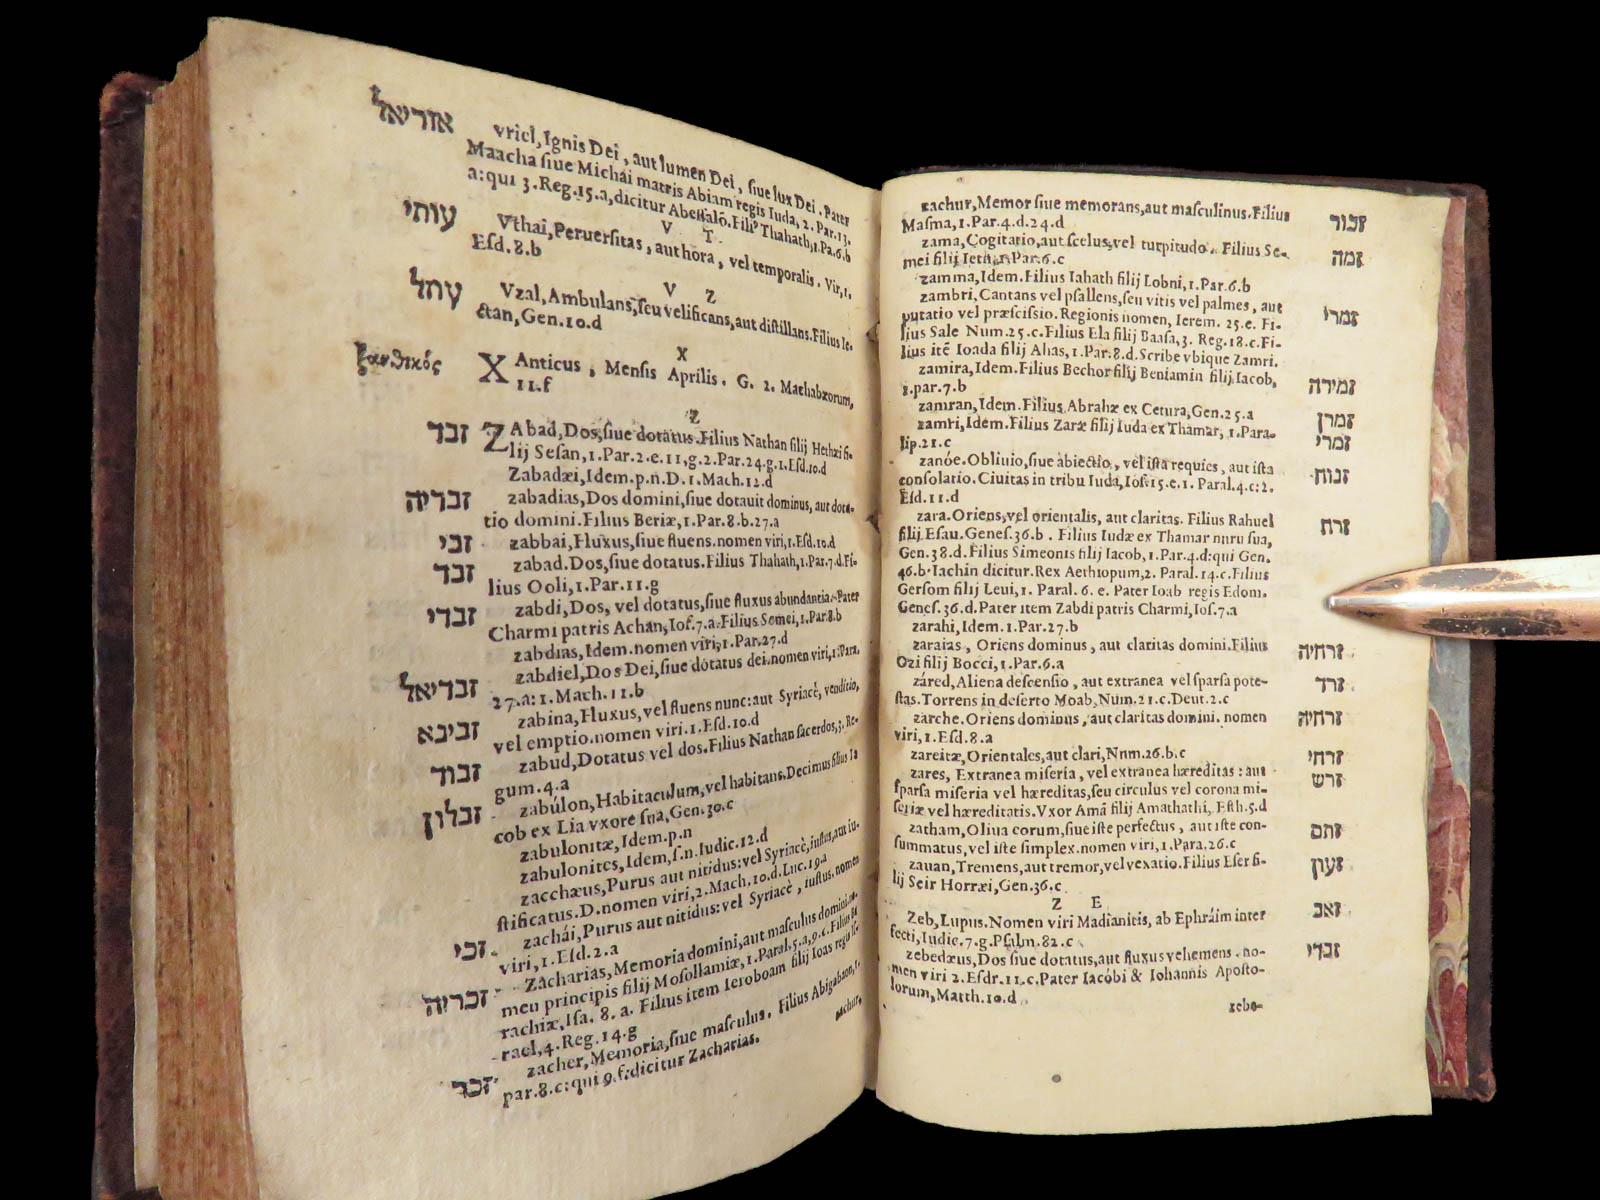 אוריאל vriel, Ignis Dei, aut lumen Dei, siue lux Dei. Pater
Maacha siue Michái matris Abiam regis Iuda, 2. Par. 13.
a: qui 3. Reg. 15. a, dicitur Abessalō. Filiꝰ Thahath, 1. Pa. 6. b
V T.
עותי Vthai, Peruersitas, aut hora, vel temporalis. Vir, 1.
Esd. 8. b
V Z
Vzal, Ambulans, seu velificans, aut distillans. Filius Ie-
ctan, Gen. 10. d
X
ξανθικός XAnticus, Mensis Aprilis. G. 2. Machabæorum,
11. f
Z
זבד ZAbad, Dos, siue dotatus. Filius Nathan filij Hethæi fi-
lij Sesan, 1. Par. 2. e. 11, g. 2. Par. 24. g. 1. Esd. 10. d
Zabadæi, Idem. p. n. D. 1. Mach. 12. d
זבדיה zabadias, Dos domini, siue dotauit dominus, aut dota-
tio domini. Filius Beriæ, 1. Par. 8. b. 27. a
זבי zabbai, Fluxus, siue fluens. nomen viri, 1. Esd. 10. d
זבד zabad. Dos, siue dotatus. Filius Thahath, 1. Par. 7. d. Fi-
lius Ooli, 1. Par. 11. g
זבדי zabdi, Dos, vel dotatus, siue fluxus abundantia. Pater
Charmi patris Achan, Ios. 7. a. Filius Semei, 1. Par. 8. b
zabdias, Idem. nomen viri, 1. Par. 27. d
זבדיאל zabdiel, Dos Dei, siue dotatus dei. nomen viri, 1. Para.
27. a: 1. Mach. 11. b
זבינא zabina, Fluxus, vel fluens nunc: aut Syriacè, venditio,
vel emptio. nomen viri. 1. Esd. 10. d
זבוד zabud, Dotatus vel dos. Filius Nathan sacerdos, 3. Re-
gum. 4. a
זבלון zabúlon, Habitaculum, vel habitans. Decimus filius Ia
cob ex Lia vxore sua, Gen. 30. c
zabulonitæ, Idem. p. n
zabulonites, Idem, s. n. Iudic. 12. d
zacchæus, Purus aut nitidus: vel Syriacè, iustus, aut iu-
stificatus. D. nomen viri, 2. Mach. 10. d. Luc. 19. a
זכי zachái, Purus aut nitidus: vel Syriacè, iustus. nomen
viri, 1. Esd. 2. a
זכריה Zacharias, Memoria domini, aut masculus domini. no-
men principis filij Mosollamiæ, 1. Paral. 5. a, 9. c. Filius Ba
rachiæ, Isa. 8. a. Filius item Ieroboam filij Ioas regis Is-
rael, 4. Reg. 14. g
זכר zacher, Memoria, siue masculus. Filius Abigabaon, 1.
par. 8. c: qui 9. f: dicitur Zacharias.
zachur,
zachur, Memor siue memorans, aut masculinus. Filius זכור
Masma, 1. Par. 4. d. 24. d
zama, Cogitatio, aut scelus, vel turpitudo. Filius Se- זמה
mei filij Ieth, 1. Par. 6. c
zamma, Idem. Filius Iahath filij Lobni, 1. Par. 6. b
zambri, Cantans vel psallens, seu vitis vel palmes, aut זמרי
putatio vel præscissio. Regionis nomen, Ierem. 25. e. Fi-
lius Sale Num. 25. c. Filius Ela filij Baasa, 3. Reg. 18. c. Fi-
lius itē Ioada filij Ahas, 1. Par. 8. d. Scribe vbique Zamri.
zamira, Idem. Filius Bechor filij Beniamin filij Iacob, זמירה
1. par. 7. b
zamran, Idem. Filius Abrahæ ex Cetura, Gen. 25. a זמרן
zamri, Idem. Filius Zaræ filij Iuda ex Thamar, 1. Para- זמרי
lip. 21. c
zanóe. Obliuio, siue abiectio, vel ista requies, aut ista זנוח
consolatio. Ciuitas in tribu Iuda, Ios. 15. e. 1. Paral. 4. c: 2.
Esd. 11. d
zara. Oriens, vel orientalis, aut claritas. Filius Rahuel זרח
filij Esau. Genes. 36. b. Filius Iudæ ex Thamar nuru sua,
Gen. 38. d. Filius Simeonis filij Iacob, 1. Par. 4. d: qui Gen.
46. b. Iachin dicitur. Rex Aethiopum, 2. Paral. 14. c. Filius
Gersom filij Leui, 1. Paral. 6. e. Pater Ioab regis Edom.
Genes. 36. d. Pater item Zabdi patris Charmi, Ios. 7. a
zarahi, Idem. 1. Par. 27. b
zaraias, Oriens dominus, aut claritas domini. Filius זרחיה
Ozi filij Bocci, 1. Par. 6. a
záred, Aliena descensio, aut extranea vel sparsa pote- זרד
stas. Torrens in deserto Moab, Num. 21. c. Deut. 2. c
zarche. Oriens dominus, aut claritas domini. nomen זרחיה
viri, 1. Esd. 8. a
zareitæ, Orientales, aut clari, Nnm. 26. b. c זרחי
zares, Extranea miseria, vel extranea hæreditas: aut זרש
sparsa miseria vel hæreditas, seu circulus vel corona mi-
seriæ vel hæreditatis. Vxor Amā filij Amathathi, Esth. 5. d
zatham, Oliua eorum, siue iste perfectus, aut iste con- זתם
summatus, vel iste simplex. nomen viri, 1. Para. 26. c
zauan, Tremens, aut tremor, vel vexatio. Filius Eser fi- זעון
lij Seir Horræi, Gen. 36. c
Z E
Zeb, Lupus. Nomen viri Madianitis, ab Ephráim inter זאב
fecti, Iudic. 7. g. Psalm. 82. c
zebedæus, Dos siue dotatus, aut fluxus vehemens. no- זבדי
men viri 2. Esdr. 11. c. Pater Iacóbi & Iohannis Aposto-
lorum, Matth. 10. d
zebe-